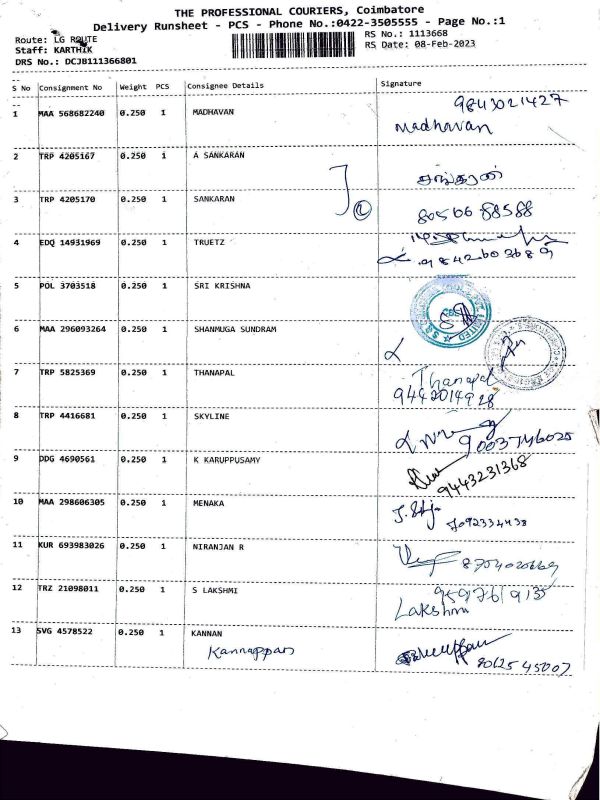 THE PROFESSIONAL COURIERS, Coimbatore
Delivery Runsheet - PCS - Phone No.:0422-3505555 - Page No.:1
Route: LG ROUTE RS No.: 1113668
Staff: KARTHIK RS Date: 08-Feb-2023
DRS No.: DCJB111366801
S No Consignment No Weight PCS Consignee Details Signature
1 MAA 568682240 0.250 1 MADHAVAN 9843021427
Madhavan
2 TRP 4205167 0.250 1 A SANKARAN
சங்கரன்
3 TRP 4205170 0.250 1 SANKARAN 80566 88588
4 EDQ 14931969 0.250 1 TRUETZ
5 POL 3703518 0.250 1 SRI KRISHNA
6 MAA 296093264 0.250 1 SHANMUGA SUNDRAM
7 TRP 5825369 0.250 1 THANAPAL Thanapal
9442014928
8 TRP 4416681 0.250 1 SKYLINE
9003746025
9 DDG 4690561 0.250 1 K KARUPPUSAMY
9443231368
10 MAA 298606305 0.250 1 MENAKA
7092334438
11 KUR 693983026 0.250 1 NIRANJAN R
12 TRZ 21098011 0.250 1 S LAKSHMI
Lakshmi
13 SVG 4578522 0.250 1 KANNAN
Kannappan 90125 45007